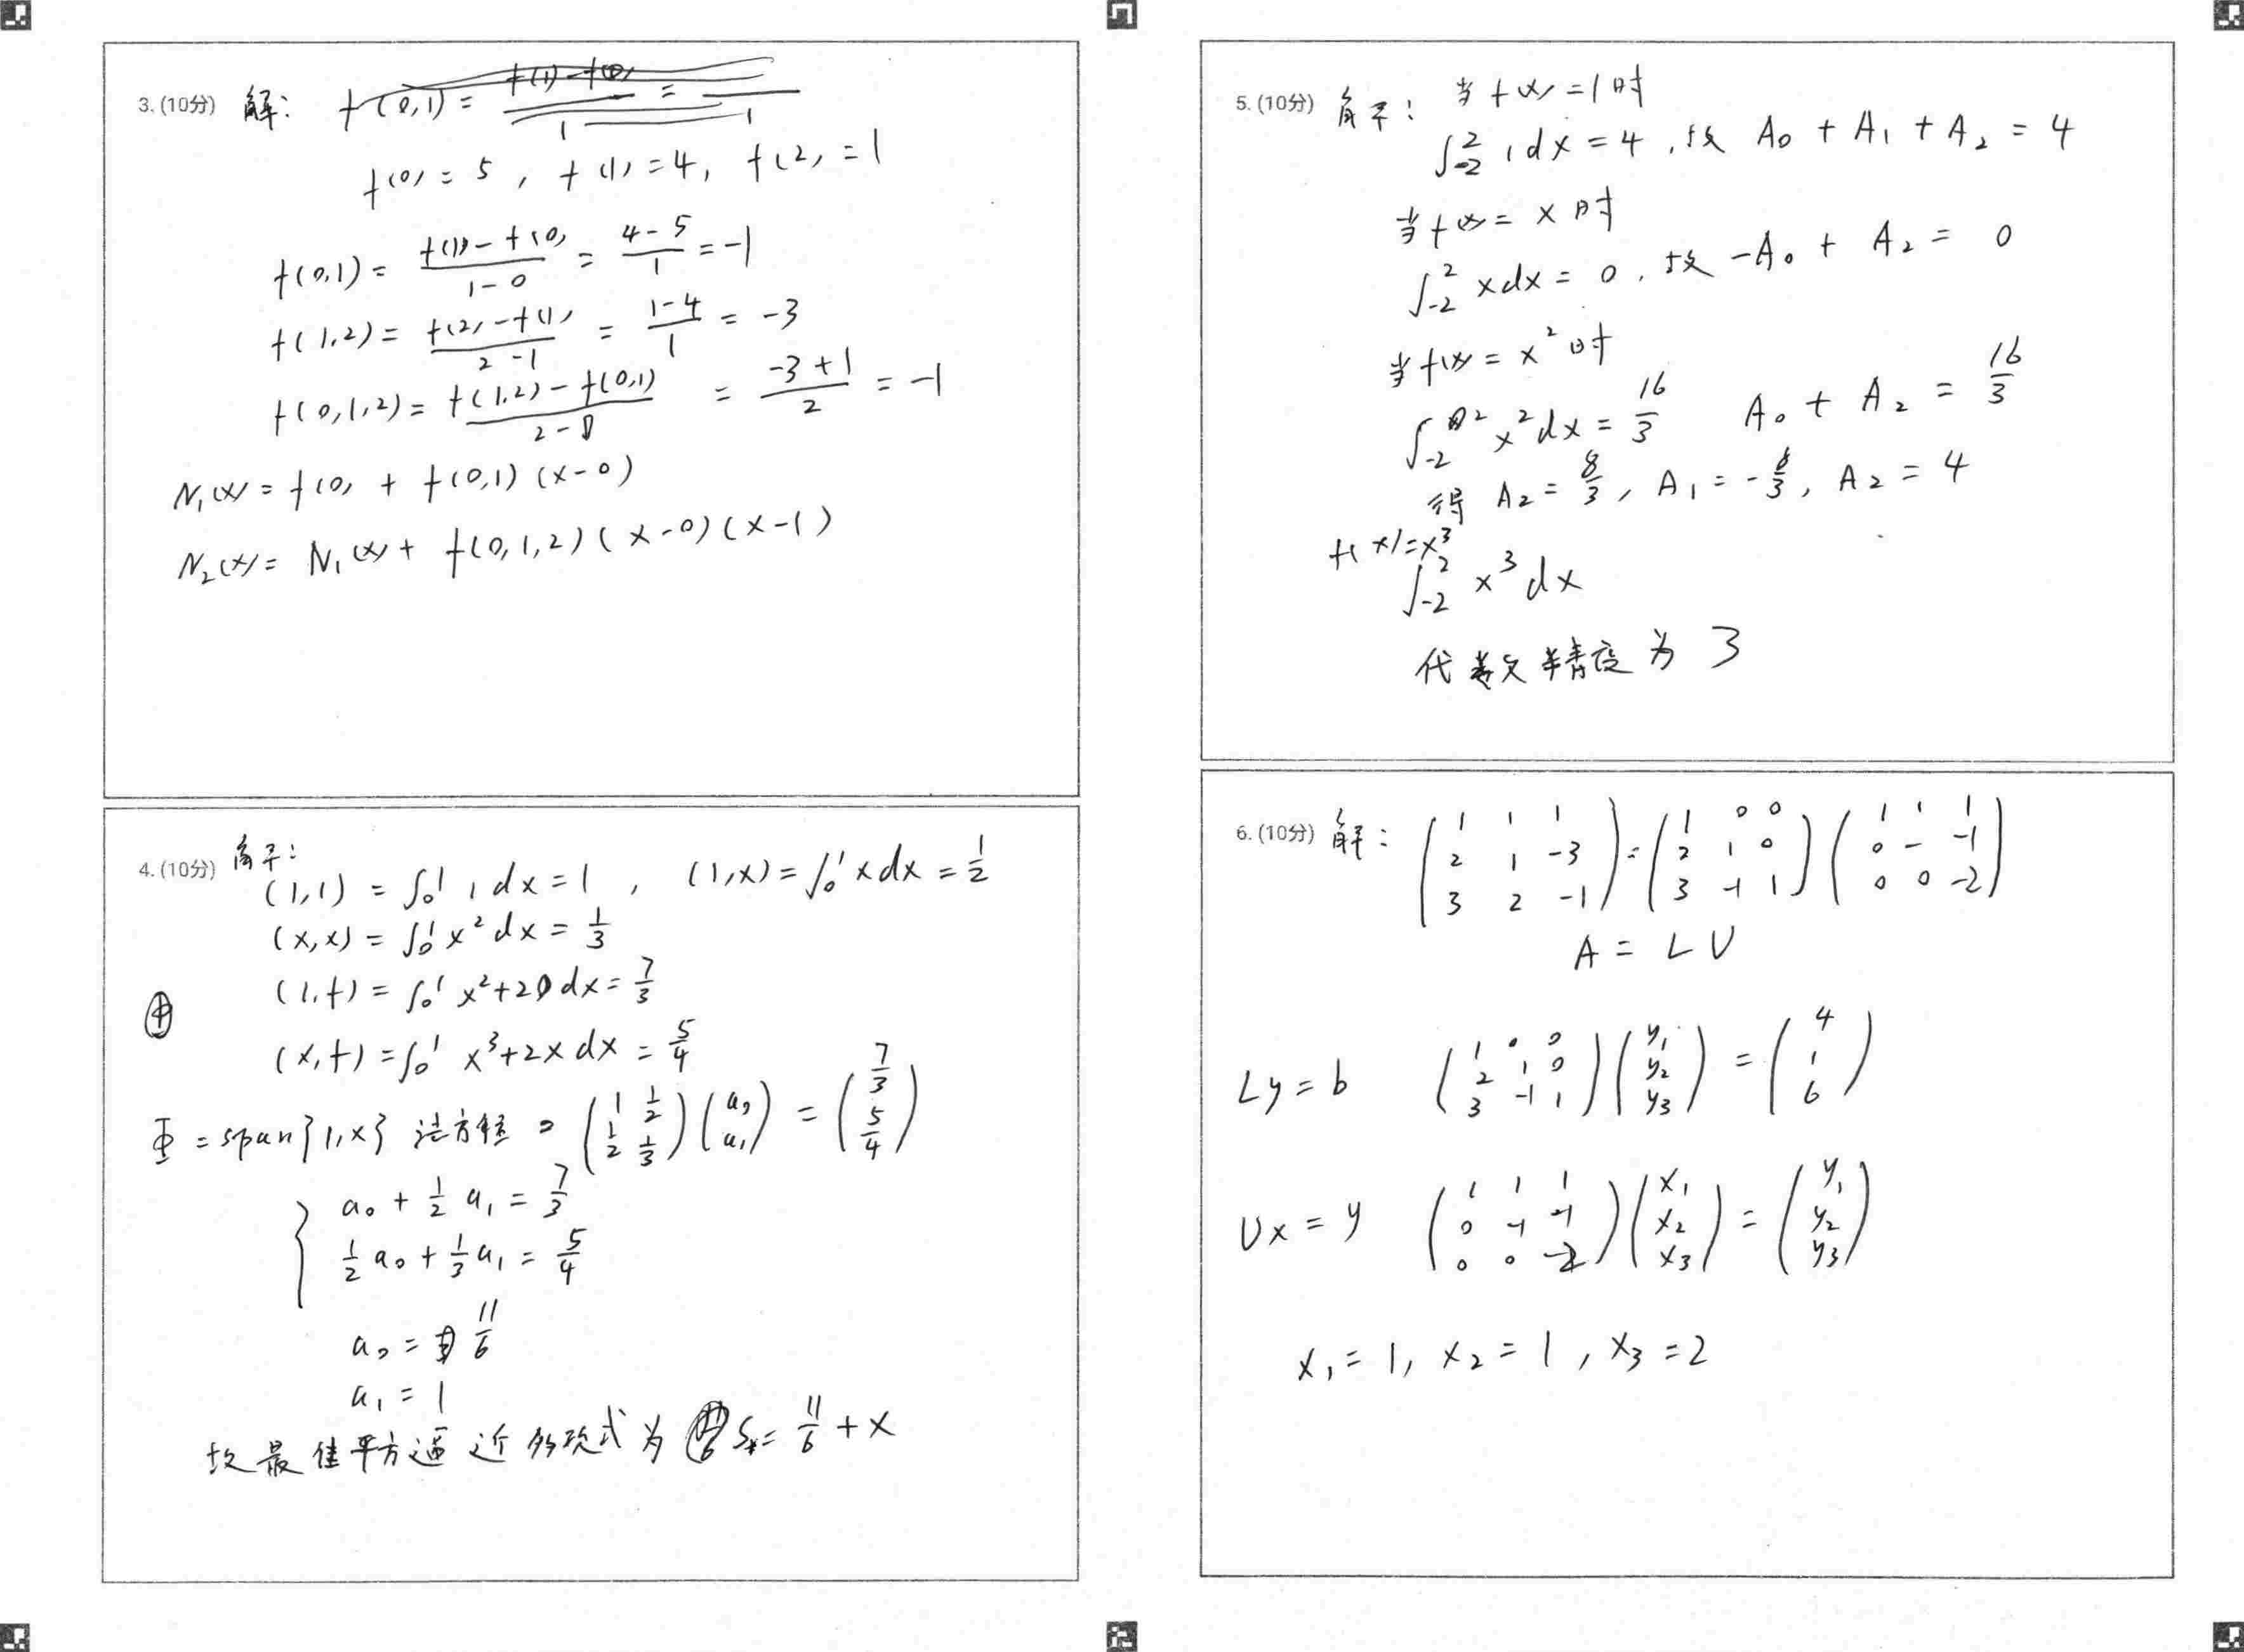 3. (10分) 解: f(0,1) = f(1)-f(0) / 1 = / 1
f(0) = 5 , f(1) = 4, f(2) = 1
f(0,1) = f(1)-f(0) / 1-0 = 4-5 / 1 = -1
f(1,2) = f(2)-f(1) / 2-1 = 1-4 / 1 = -3
f(0,1,2) = f(1,2)-f(0,1) / 2-0 = -3+1 / 2 = -1
N₁(x) = f(0) + f(0,1)(x-0)
N₂(x) = N₁(x) + f(0,1,2)(x-0)(x-1)
4. (10分) 解:
(1,1) = ∫₀¹ 1 dx = 1 , (1,x) = ∫₀¹ x dx = 1/2
(x,x) = ∫₀¹ x² dx = 1/3
(1,f) = ∫₀¹ x²+2 dx = 7/3
(x,f) = ∫₀¹ x³+2x dx = 5/4
Φ = span{1,x} 法方程 (1 1/2; 1/2 1/3)(a₀; a₁) = (7/3; 5/4)
a₀ + 1/2 a₁ = 7/3
1/2 a₀ + 1/3 a₁ = 5/4
a₀ = 11/6
a₁ = 1
故最佳平方逼近多项式为 S* = 11/6 + x
5. (10分) 解: 当f(x) = 1时
∫₋₂² 1 dx = 4 , 故 A₀ + A₁ + A₂ = 4
当f(x) = x 时
∫₋₂² x dx = 0 , 故 -A₀ + A₂ = 0
当f(x) = x² 时
∫₋₂² x² dx = 16/3 A₀ + A₂ = 16/3
得 A₂ = 8/3 , A₁ = -8/3 , A₂ = 4
f(x) = x³
∫₋₂² x³ dx
代数精度为 3
6. (10分) 解: (1 1 1; 2 1 -3; 3 2 -1) = (1 0 0; 2 1 0; 3 -1 1)(1 1 1; 0 - -1; 0 0 -2)
A = LU
Ly = b (1 0 0; 2 1 0; 3 -1 1)(y₁; y₂; y₃) = (4; 1; 6)
Ux = y (1 1 1; 0 -1 -1; 0 0 -2)(x₁; x₂; x₃) = (y₁; y₂; y₃)
x₁ = 1, x₂ = 1 , x₃ = 2